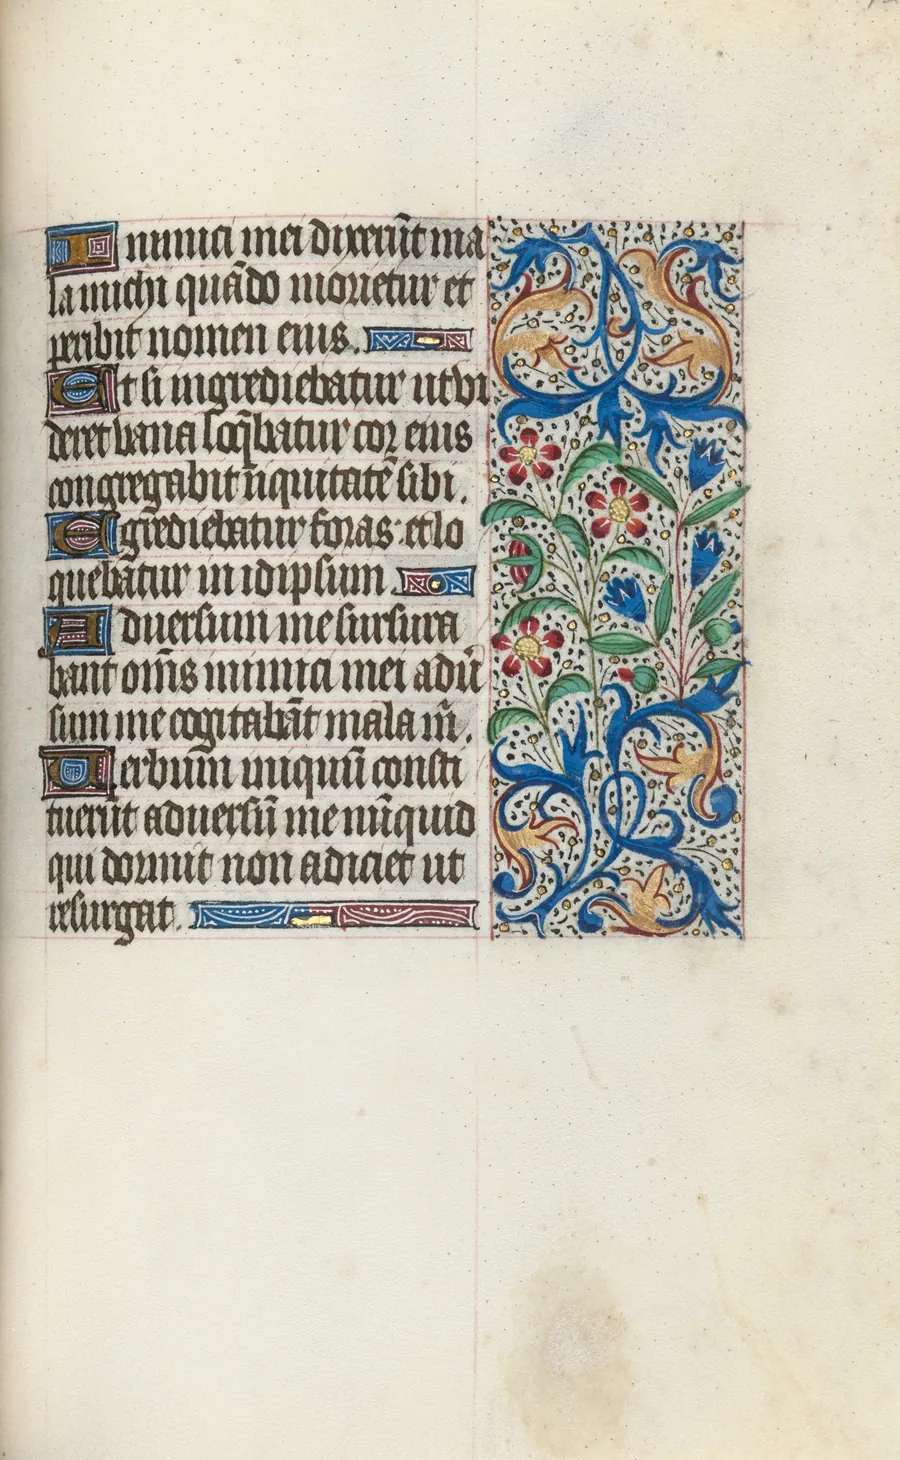 Inimici mei dixerūt ma
la michi quādo morietur et
peribit nomen eius.
Et si ingrediebatur ut vi
deret vana loq̄batur cor eius
congregabit īiquitatē sibi.
Egrediebatur foras: et lo
quebatur in idipsum.
Adversum me susura
bant oīns inimici mei adū
sum me cogitabāt mala m̄.
Verbum iniquū consti
tuerūt adversū me nūquid
qui dormit non adiciet ut
resurgat.